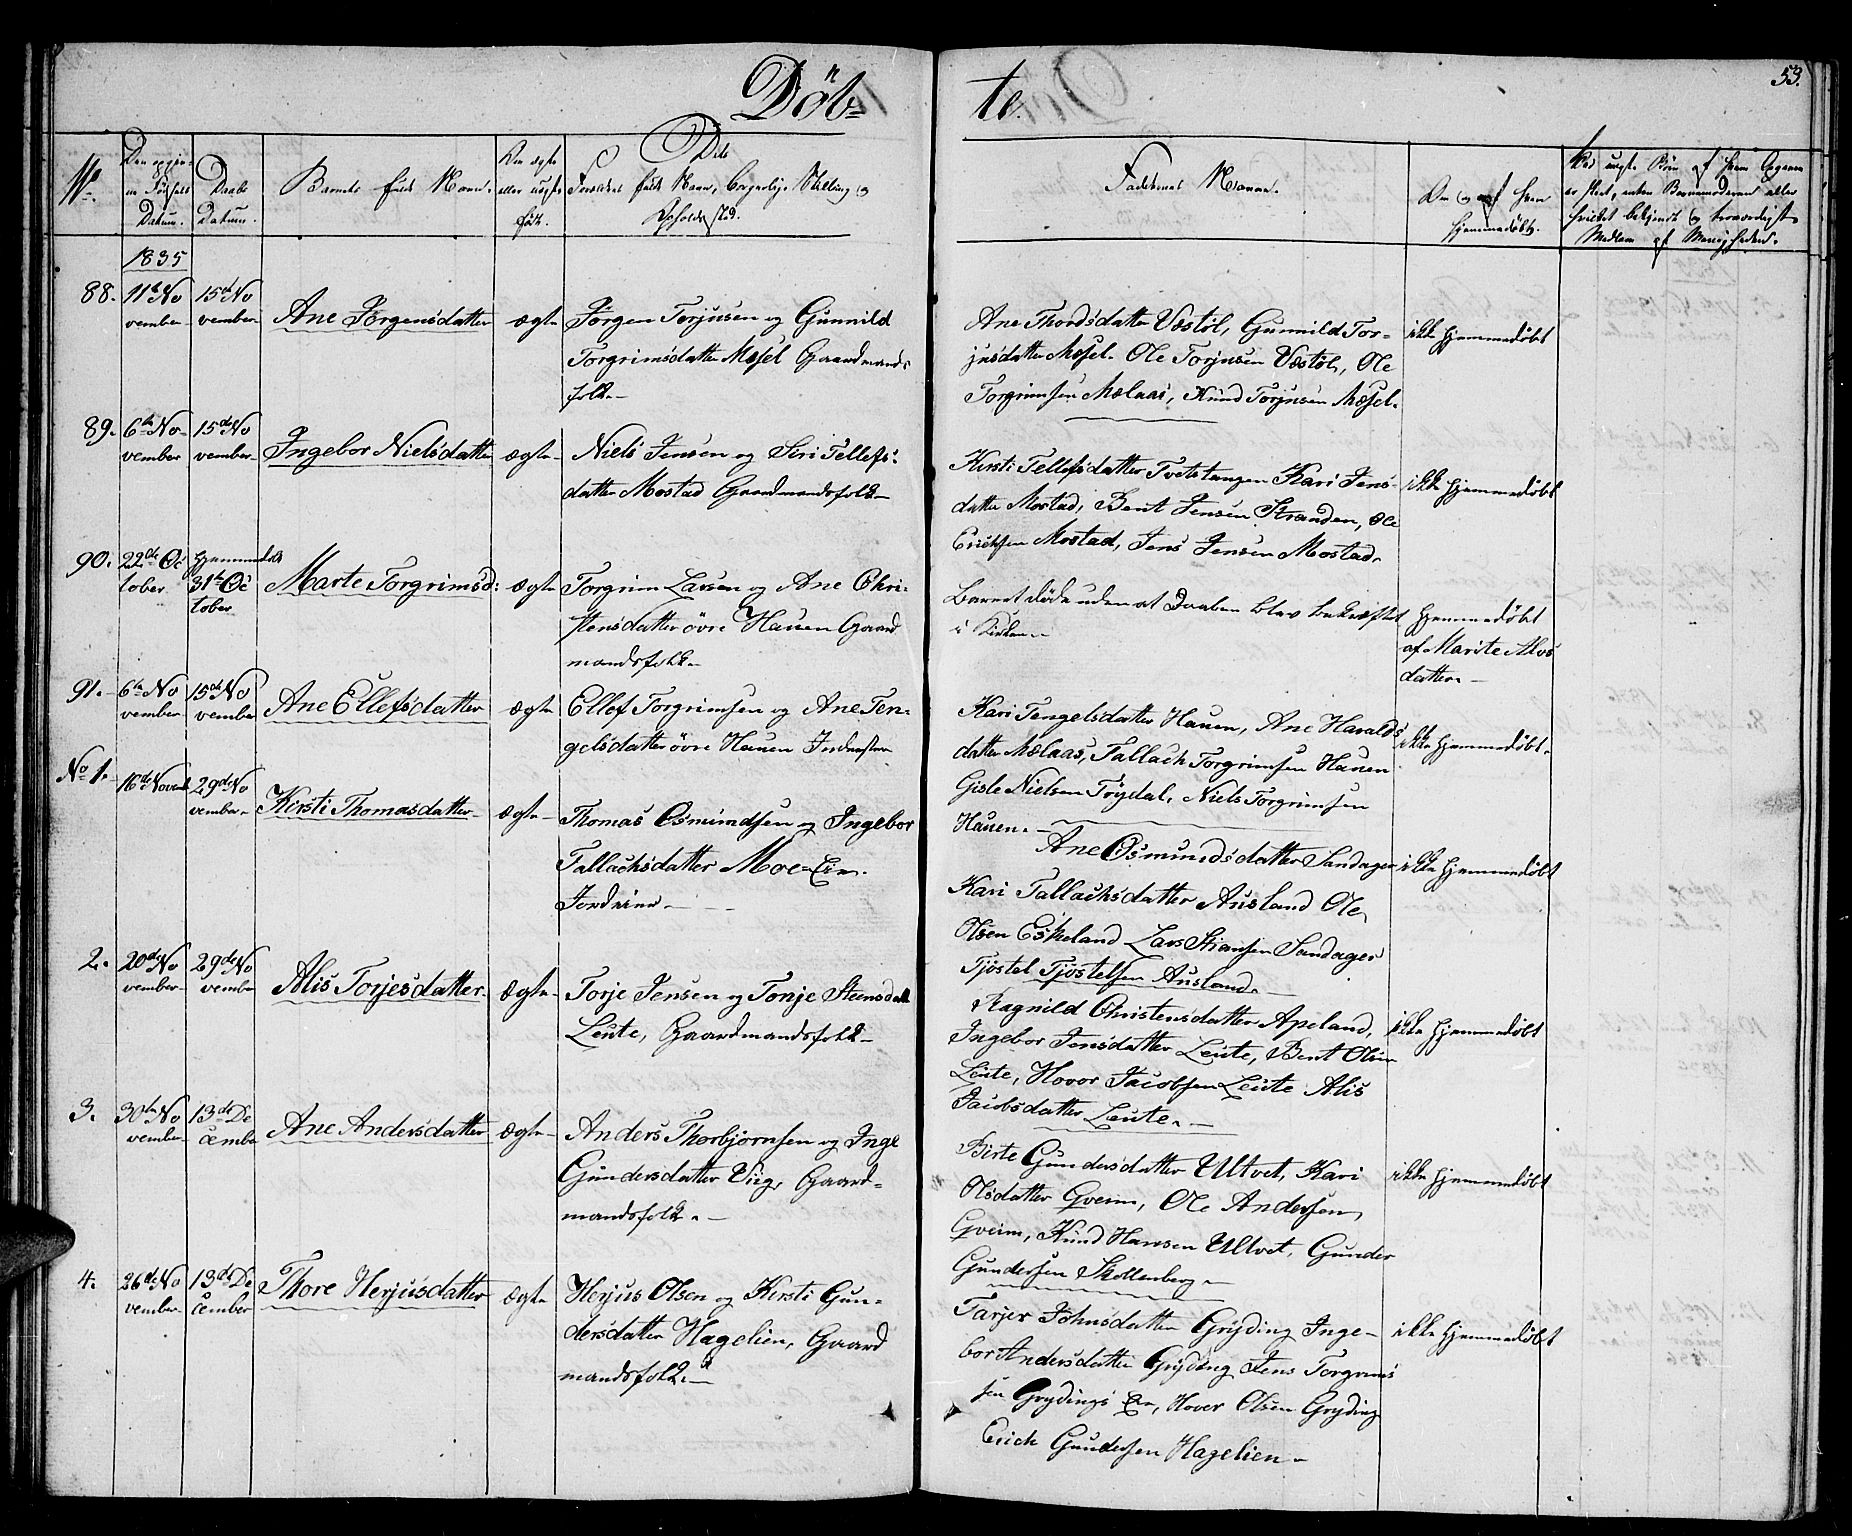 Döb-
te.
53.
No.
Den opgiv-
ne Födsels
Datum.
Daabs
Datum.
Barnets fulde Navn.
Om ægte
eller uægte
född.
Dets
Forældres fulde Navn, borgerlige Stilling og
Opholdssted.
Faddernes Navne.
Om og af hvem
hjemmedöbt.
Ved uægte Börn af hvem Opgaven
er skeet, enten Barnemoderen eller
hvilket bekjendt og troværdigt
Medlem af Menigheden.
1835
88. 11te No
vember
15de No
vember
Ane Jörgensdatter
ægte
Jörgen Torjusen og Gunnild
Torgrimsdatter Mesel Gaardmands
folk
Ane Thordsdatter Vestöl, Gunnild Tor-
jusdatter Mesel. Ole Torjusen Vestöl, Ole
Torgrimsen Mælaas, Knud Torjusen Mesel.
ikke hjemmedöbt
89. 6te No-
vember
15de No
vember
Ingebor Nielsdatter
ægte
Niels Jensen og Siri Tellefs-
datter Mostad Gaardmandsfolk
Kirsti Tellefsdatter Tvetetangen Kari Jens-
datter Mostad, Bent Jensen Stranden, Ole
Erichsen Mostad, Jens Jensen Mostad.
ikke hjemmedöbt
90. 22de Oc
tober
hjemmedöbt
31te Oc
tober
Marte Torgrimsd:
ægte
Torgrim Larsen og Ane Chri-
stensdatter övre Hauen Gaard
mandsfolk
Barnet döde uden at Daaben blev bekræftet
i Kirken
hjemmedöbt
af Marite Alvs
datter
91. 6te No
vember
15de No
vember
Ane Ellefsdatter
ægte
Ellef Torgrimsen og Ane Ten-
gelsdatter övre Hauen Inderster
Kari Tengelsdatter Hauen, Ane Haralds
datter Mælaas, Tallach Torgrimsen Hauen
Gisle Nielsen Tröydal, Niels Torgrimsen
Hauen.
ikke hjemmedöbt.
No 1. 16de Novemb
29de No
vember
Kirsti Thomasdatter
ægte
Thomas Osmundsen og Ingebor
Tallachsdatter Moe-Eie.
Jordeier
Ane Osmundsdatter Sandager
Kari Tallachsdatter Ausland Ole
Olsen Eskeland Lars Stiansen Sandager
Tjöstel Tjöstelsen Ausland.
ikke hjemmedöbt
2. 20de No
vember
29de No
vember
Alis Torjesdatter
ægte
Torje Jensen og Tonje Steensdatt
Leute, Gaardmandsfolk
Ragnild Christensdatter Apeland,
Ingebor Jensdatter Leute, Bent Olsen
Leute, Hovor Jacobsen Leute Alis
Jacobsdatter Leute.
ikke hjemmedöbt
3. 30te No
vember
13de De
cember
Ane Andersdatter
ægte
Anders Thorbjörnsen og Inge
Gundersdatter Vieg, Gaard-
mandsfolk.
Birte Gundersdatter Ultvet, Kari
Olsdatter Gveim, Ole Andersen
Gveim, Knud Hansen Ultvet, Gunder
Gundersen Skollenberg
ikke hjemmedöbt
4. 26de No
vember
13de De
cember
Thore Herjusdatter
ægte
Herjus Olsen og Kirsti Gun-
dersdatter Hagelien, Gaard
mandsfolk.
Tarjer Johnsdatter Gryding Inge-
bor Andersdatter Gryding Jens Torgrims
sen Grydings Eie, Hover Olsen Gryding
Erich Gundersen Hagelien
ikke hjemmedöbt